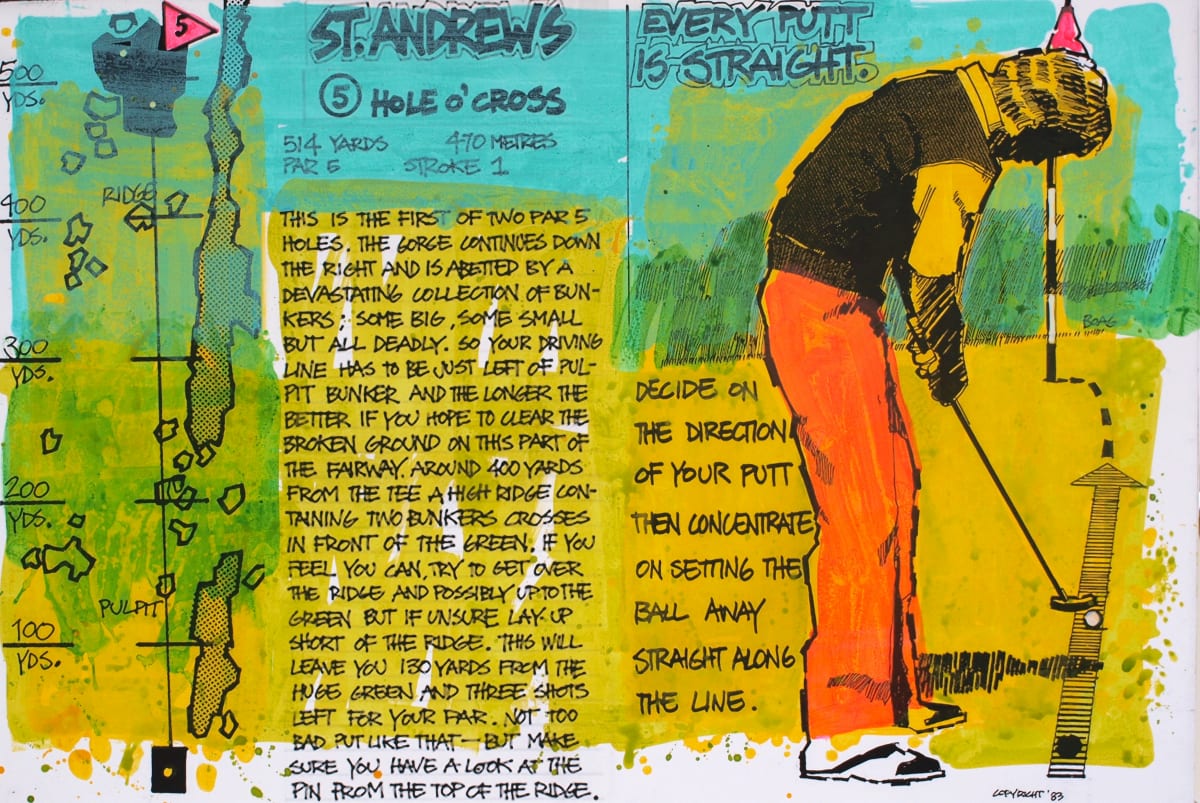 5
500
YDS.
RIDGE
400
YDS.
300
YDS.
200
YDS.
PULPIT
100
YDS.
ST. ANDREWS
5 HOLE O' CROSS
514 YARDS 470 METRES
PAR 5 STROKE 1
THIS IS THE FIRST OF TWO PAR 5
HOLES. THE GORGE CONTINUES DOWN
THE RIGHT AND IS ABETTED BY A
DEVASTATING COLLECTION OF BUN-
KERS; SOME BIG, SOME SMALL
BUT ALL DEADLY. SO YOUR DRIVING
LINE HAS TO BE JUST LEFT OF PUL-
PIT BUNKER AND THE LONGER THE
BETTER IF YOU HOPE TO CLEAR THE
BROKEN GROUND ON THIS PART OF
THE FAIRWAY. AROUND 400 YARDS
FROM THE TEE A HIGH RIDGE CON-
TAINING TWO BUNKERS CROSSES
IN FRONT OF THE GREEN. IF YOU
FEEL YOU CAN, TRY TO GET OVER
THE RIDGE AND POSSIBLY UP TO THE
GREEN BUT IF UNSURE LAY-UP
SHORT OF THE RIDGE. THIS WILL
LEAVE YOU 130 YARDS FROM THE
HUGE GREEN AND THREE SHOTS
LEFT FOR YOUR PAR. NOT TOO
BAD PUT LIKE THAT — BUT MAKE
SURE YOU HAVE A LOOK AT THE
PIN FROM THE TOP OF THE RIDGE.
EVERY PUTT
IS STRAIGHT.
BOAG
DECIDE ON
THE DIRECTION
OF YOUR PUTT
THEN CONCENTRATE
ON SETTING THE
BALL AWAY
STRAIGHT ALONG
THE LINE.
COPYRIGHT '83